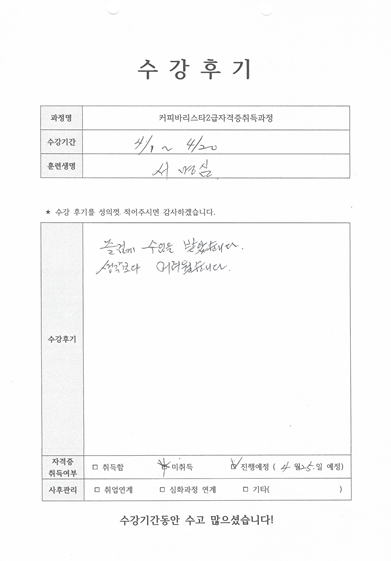 수강후기
과정명 커피바리스타2급자격증취득과정
수강기간 4/1 ~ 4/20
훈련생명 서명심
★ 수강 후기를 성의껏 적어주시면 감사하겠습니다.
수강후기
즐겁게 수업을 받았습니다.
생각보다 어려웠습니다.
자격증 취득여부 □ 취득함 □ 미취득 □ 진행예정 ( 4 월 25 일 예정)
사후관리 □ 취업연계 □ 심화과정 연계 □ 기타( )
수강기간동안 수고 많으셨습니다!